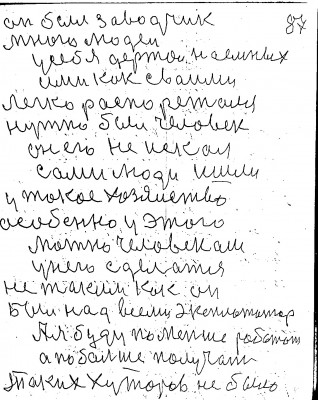 87
он был заводчик
много людей
у себя держал наемных
ими как сваими
легко распо режался
нужно были человек
он его не искал
сами люди ишли
у такое хозяйство
особенно у этого
можно человекам
у него сделатся
не таким как он
Был над всеми эксплотатор
Ял буду поменше работат
а побалше получат
Таких хуторов не было